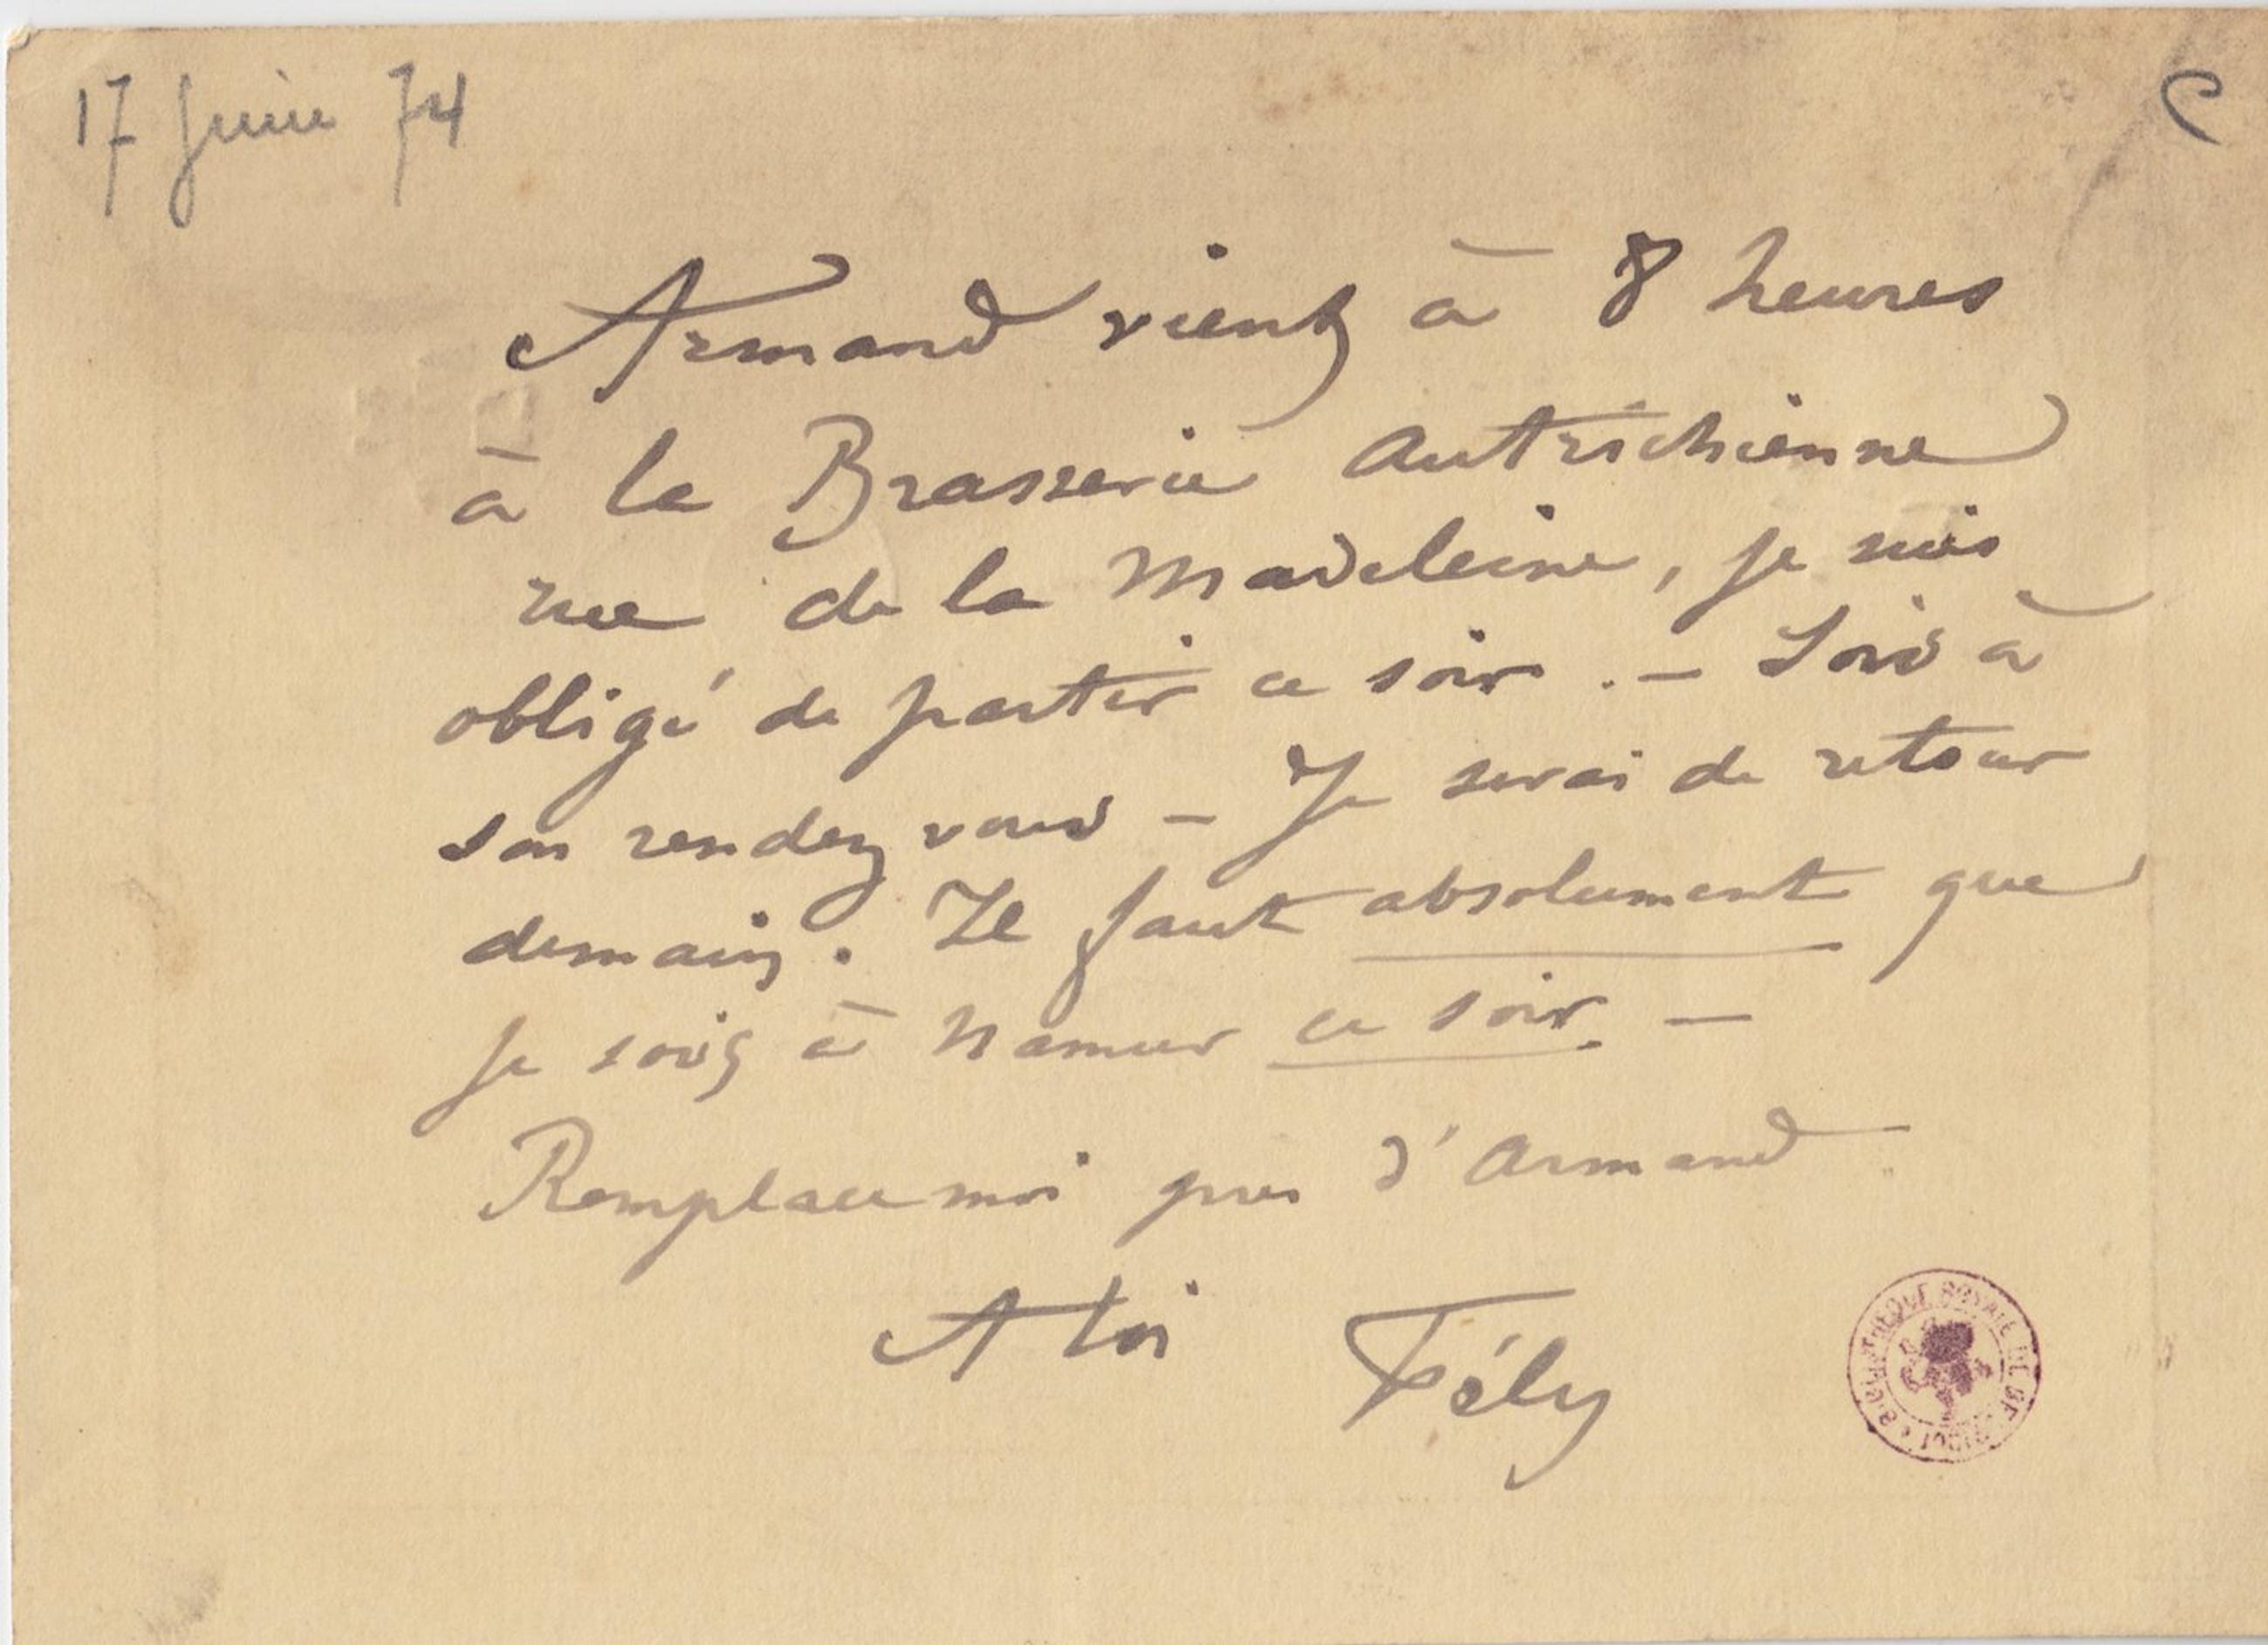 17 Juin 74
Armand vient à 8 heures
à la Brasserie Autrichienne
rue de la Madeleine, je suis
obligé de partir ce soir. — Sois à
son rendez vous — Je serai de retour
demain. Il faut absolument que
je sois à Namur ce soir. —
Remplace moi près d'Armand
A toi Fély
BIBLIOTHÈQUE ROYALE DE BELGIQUE